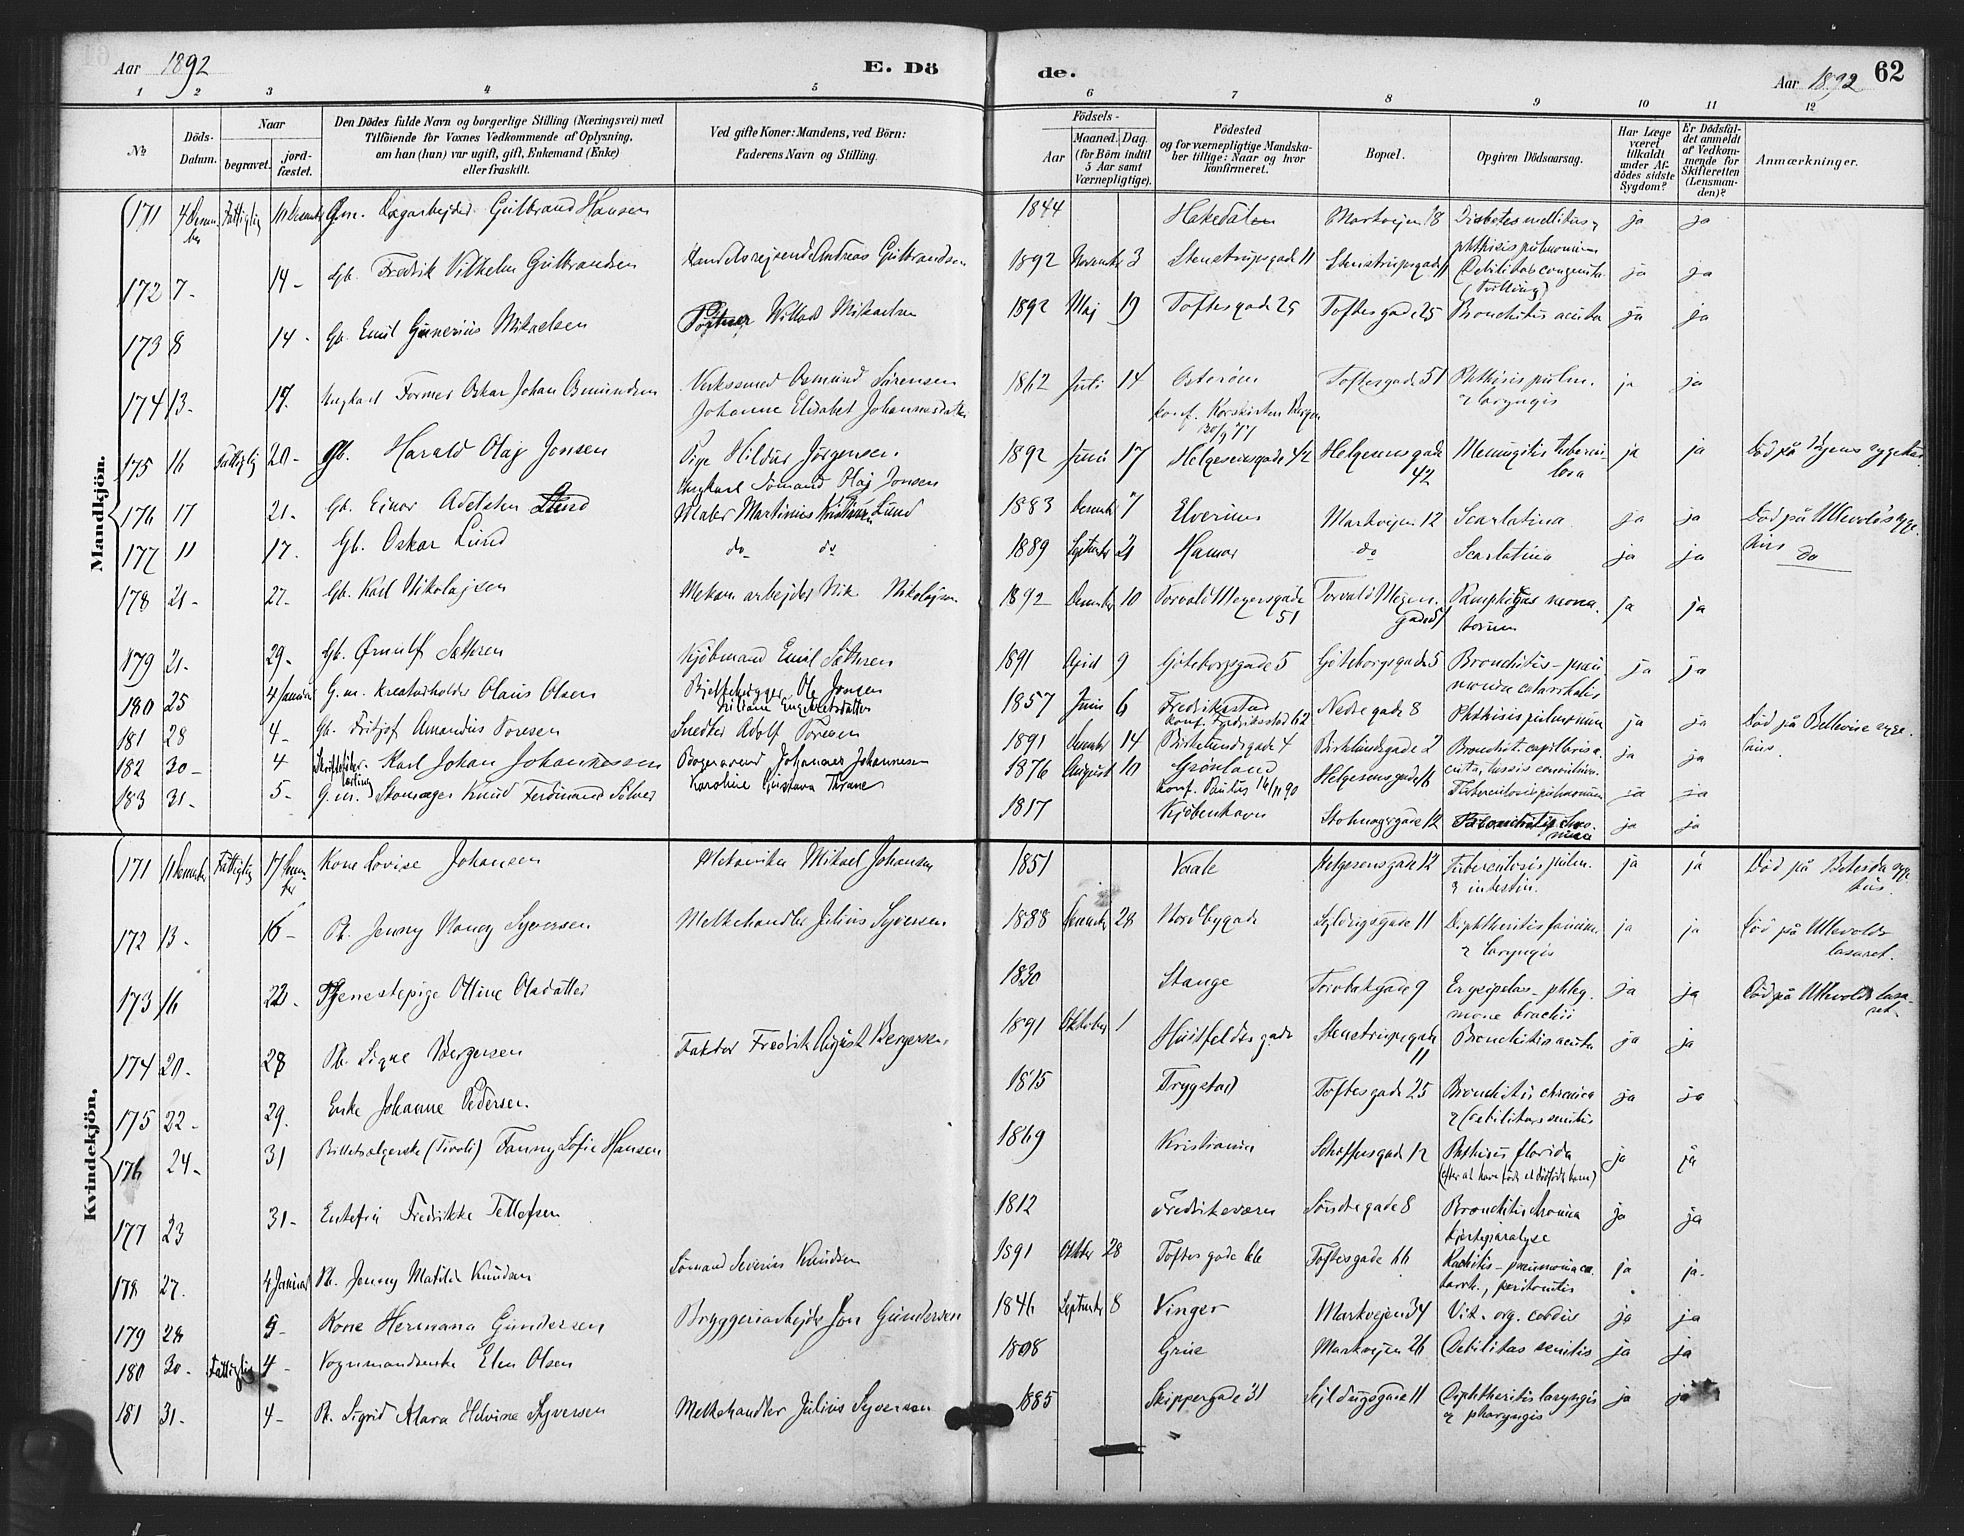 Aar 1892
E. Dö
de.
Aar 1892
62
1 2 3 4 5 6 7 8 9 10 11 12
№
Döds-
Datum.
Naar
begravet.
jord-
fæstet.
Den Dödes fulde Navn og borgerlige Stilling (Næringsvei) med
Tilföiende for Voxnes Vedkommende af Oplysning,
om han (hun) var ugift, gift, Enkemand (Enke)
eller fraskilt.
Ved gifte Koner: Mandens, ved Börn:
Faderens Navn og Stilling.
Födsels-
Aar
Maaned. Dag.
(for Börn indtil
5 Aar samt
Værnepligtige).
Födested
og for værnepligtige Mandska-
ber tillige: Naar og hvor
konfirmeret.
Bopæl.
Opgiven Dödsaarsag.
Har Læge
været
tilkaldt
under Af-
dödes sidste
Sygdom?
Er Dödsfal-
det anmeldt
af Vedkom-
mende for
Skifteretten
(Lensman-
den)?
Anmærkninger.
Mandkjön.
171 4 Decem-ber Fattiglig 10 Decembr Gm. Dagarbejder Gulbrand Hansen 1844 Hakedalen Markvejen 18 Diabetes mellitus, phthisis pulmonum ja ja
172 7- 14- Gb. Fredrik Vilhelm Gulbrandsen Handelsrejsende Andreas Gulbrandsen 1892 Novembr 3 Stenstrupsgad 11 Stenstrupsgade 11 Debilitas congenita (Tvilling) ja ja
173 8 14- Gb. Emil Gunerius Mikaelsen Portner Willad Mikaelsen 1892 Maj 19 Toftesgade 25 Toftesgade 25 Bronchitis acuta ja ja
174 13- 17. Ungkarl Former Oskar Johan Osmundsen Verkssmed Osmund Sørensen Johanne Elisabet Johannesdatter 1862 Juli 14 Osterøen konf. Korskirken Bergen 30/9 77 Toftesgade 51 Phthisis pulm. & laryngis ja ja
175 16 Fattiglig 20- Gb. Harald Olaj Jonsen Pige Hildur Jørgensen. Ungkarl Sømand Olaj Jonsen 1892 Juni 17 Helgesensgade 42 Helgesensgade 42 Meningitis tubercu-losa ja ja Død på Vågens sygehus
176 17 21- Gb. Einar Adelsten Lund Maler Martinius Kristiansen Lund 1883 Decembr 7 Elverum Markvejen 12 Scarlatina ja ja Død på Ullevolds syge-hus
177 11 17. Gb. Oskar Lund do do 1889 Septembr 21 Hamar do Scarlatina ja ja do
178 21- 27- Gb. Karl Nikolajsen Mekan. arbejder Nik Nikolajsen 1892 Decembr 10 Torvald Meyersgade 51 Torvald Meyers gade 51 Pemphigus neona-torum ja ja
179 21- 29- Gb. Ørnulf Sæthren Kjøbmand Emil Sæthren 1891 April 9 Göteborgsgade 5 Göteborgsgade 5 Bronchitis-pneu monia catarrhalis ja ja
180 25 4 Januar G.m. Kreaturholder Olaus Olsen Ole Jonsen 1857 Juni 6 Fredrikstad konf. Fredriksstad 62 Nedre gade 8 Phthisis pulmonum ja ja Død på Bellevue syge-hus.
181 28 4- Gb. Fritjof Amandus Toresen Snedker Adolf Toresen 1891 Decembr 14 Birkelundsgade 4 Birkelundsgade 2 Bronchit. capillaris a-cuta, tussis convulsiva ja ja
182 30- 4 lærling Karl Johan Johannessen Johannes Johannesen Karoline Gustava Thrane 1876 August 10 Grønland konf. Paulus 14/11 90 Helgesensgade 16 Tuberculosis pulmonum ja ja
183 31- 5- G.m. Skomager Knud Ferdinand Sølver 1817 Kjøbenhavn Stolmagergade 12 ja ja
Kvindekjön.
171 11 Decembr Fattiglig 17 Decem-ber Kone Lovise Johansen Mikael Johansen 1851 Vaale Helgesensgade 12 Tuberculosis pulm. & intestin. ja ja Død på Betesda syge-hus.
172 13- 16- Pb. Jenny Nancy Syversen Melkehandler Julius Syversen 1888 Decembr 28 Nordbygade Sejldugsgade 11 Diphtheritis faucium & laryngis ja ja Død på Ullevolds lasaret.
173 16 22- Tjenestepige Olline Olsdatter 1830 Stange Torvbakgade 9 Erysipelas-phleg-mone brachii ja ja Død på Ullevolds lasa-ret.
174 20- 28 Pb. Signe Bergersen Faktor Fredrik August Bergersen. 1891 Oktober 1 Huitfeldtsgade Stenstrupsgade 11 Bronchitis acuta ja ja
175 22- 29. Enke Johanne Pedersen. 1815 Trygstad Toftesgade 25 Bronchitis chronica & debilitas senilis ja ja
176 24- 31 Billetsælgerske (Tivoli) Fanny Sofie Hansen 1869 Kristiania Schøffersgade 12 Phthisis florida (efter at have født et dødfødt barn) ja ja
177 23 31- Enkefru Fredrikke Tellefsen 1812 Fredriksværn Søndregade 8 Bronchitis chronica hjerteparalyse ja ja
178 27. 4 Januar Pb. Jenny Matilde Knudsen Sømand Severin Knudsen 1891 Oktbr 28 Toftesgade 66 Toftesgade 66 Rachitis-pneumonia ca-tarrh., peritonitis ja ja-
179 28 5- Kone Hermana Gundersen Bryggeriarbejder Jon Gundersen 1846 Septembr 8 Vinger Markvejen 34 Vit. org. cordis ja ja
180 30- Fattiglig 4- Vognmandsenke Elen Olsen 1808 Grue Markvejen 26 Debilitas senilis ja ja
181 31- 4- Pb. Sigrid Klara Helvine Syversen Melkehandler Julius Syversen 1885 Skippergade 31 Sejldugsgade 11 Diphtheritis laryngis & pharyngis ja ja